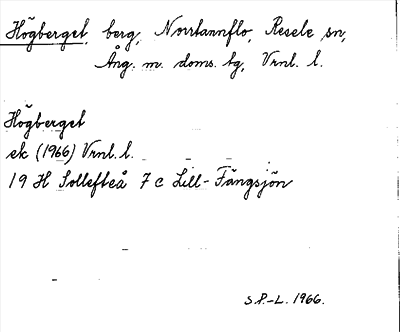 Högberget, berg, Norrtannflo, Resele sn,
Ång. m. doms. tg, Vrnl. l.
Högberget
ek (1966) Vrnl. l.
19 H Sollefteå 7 c Lill-Fängsjön
S.P.-L. 1966.